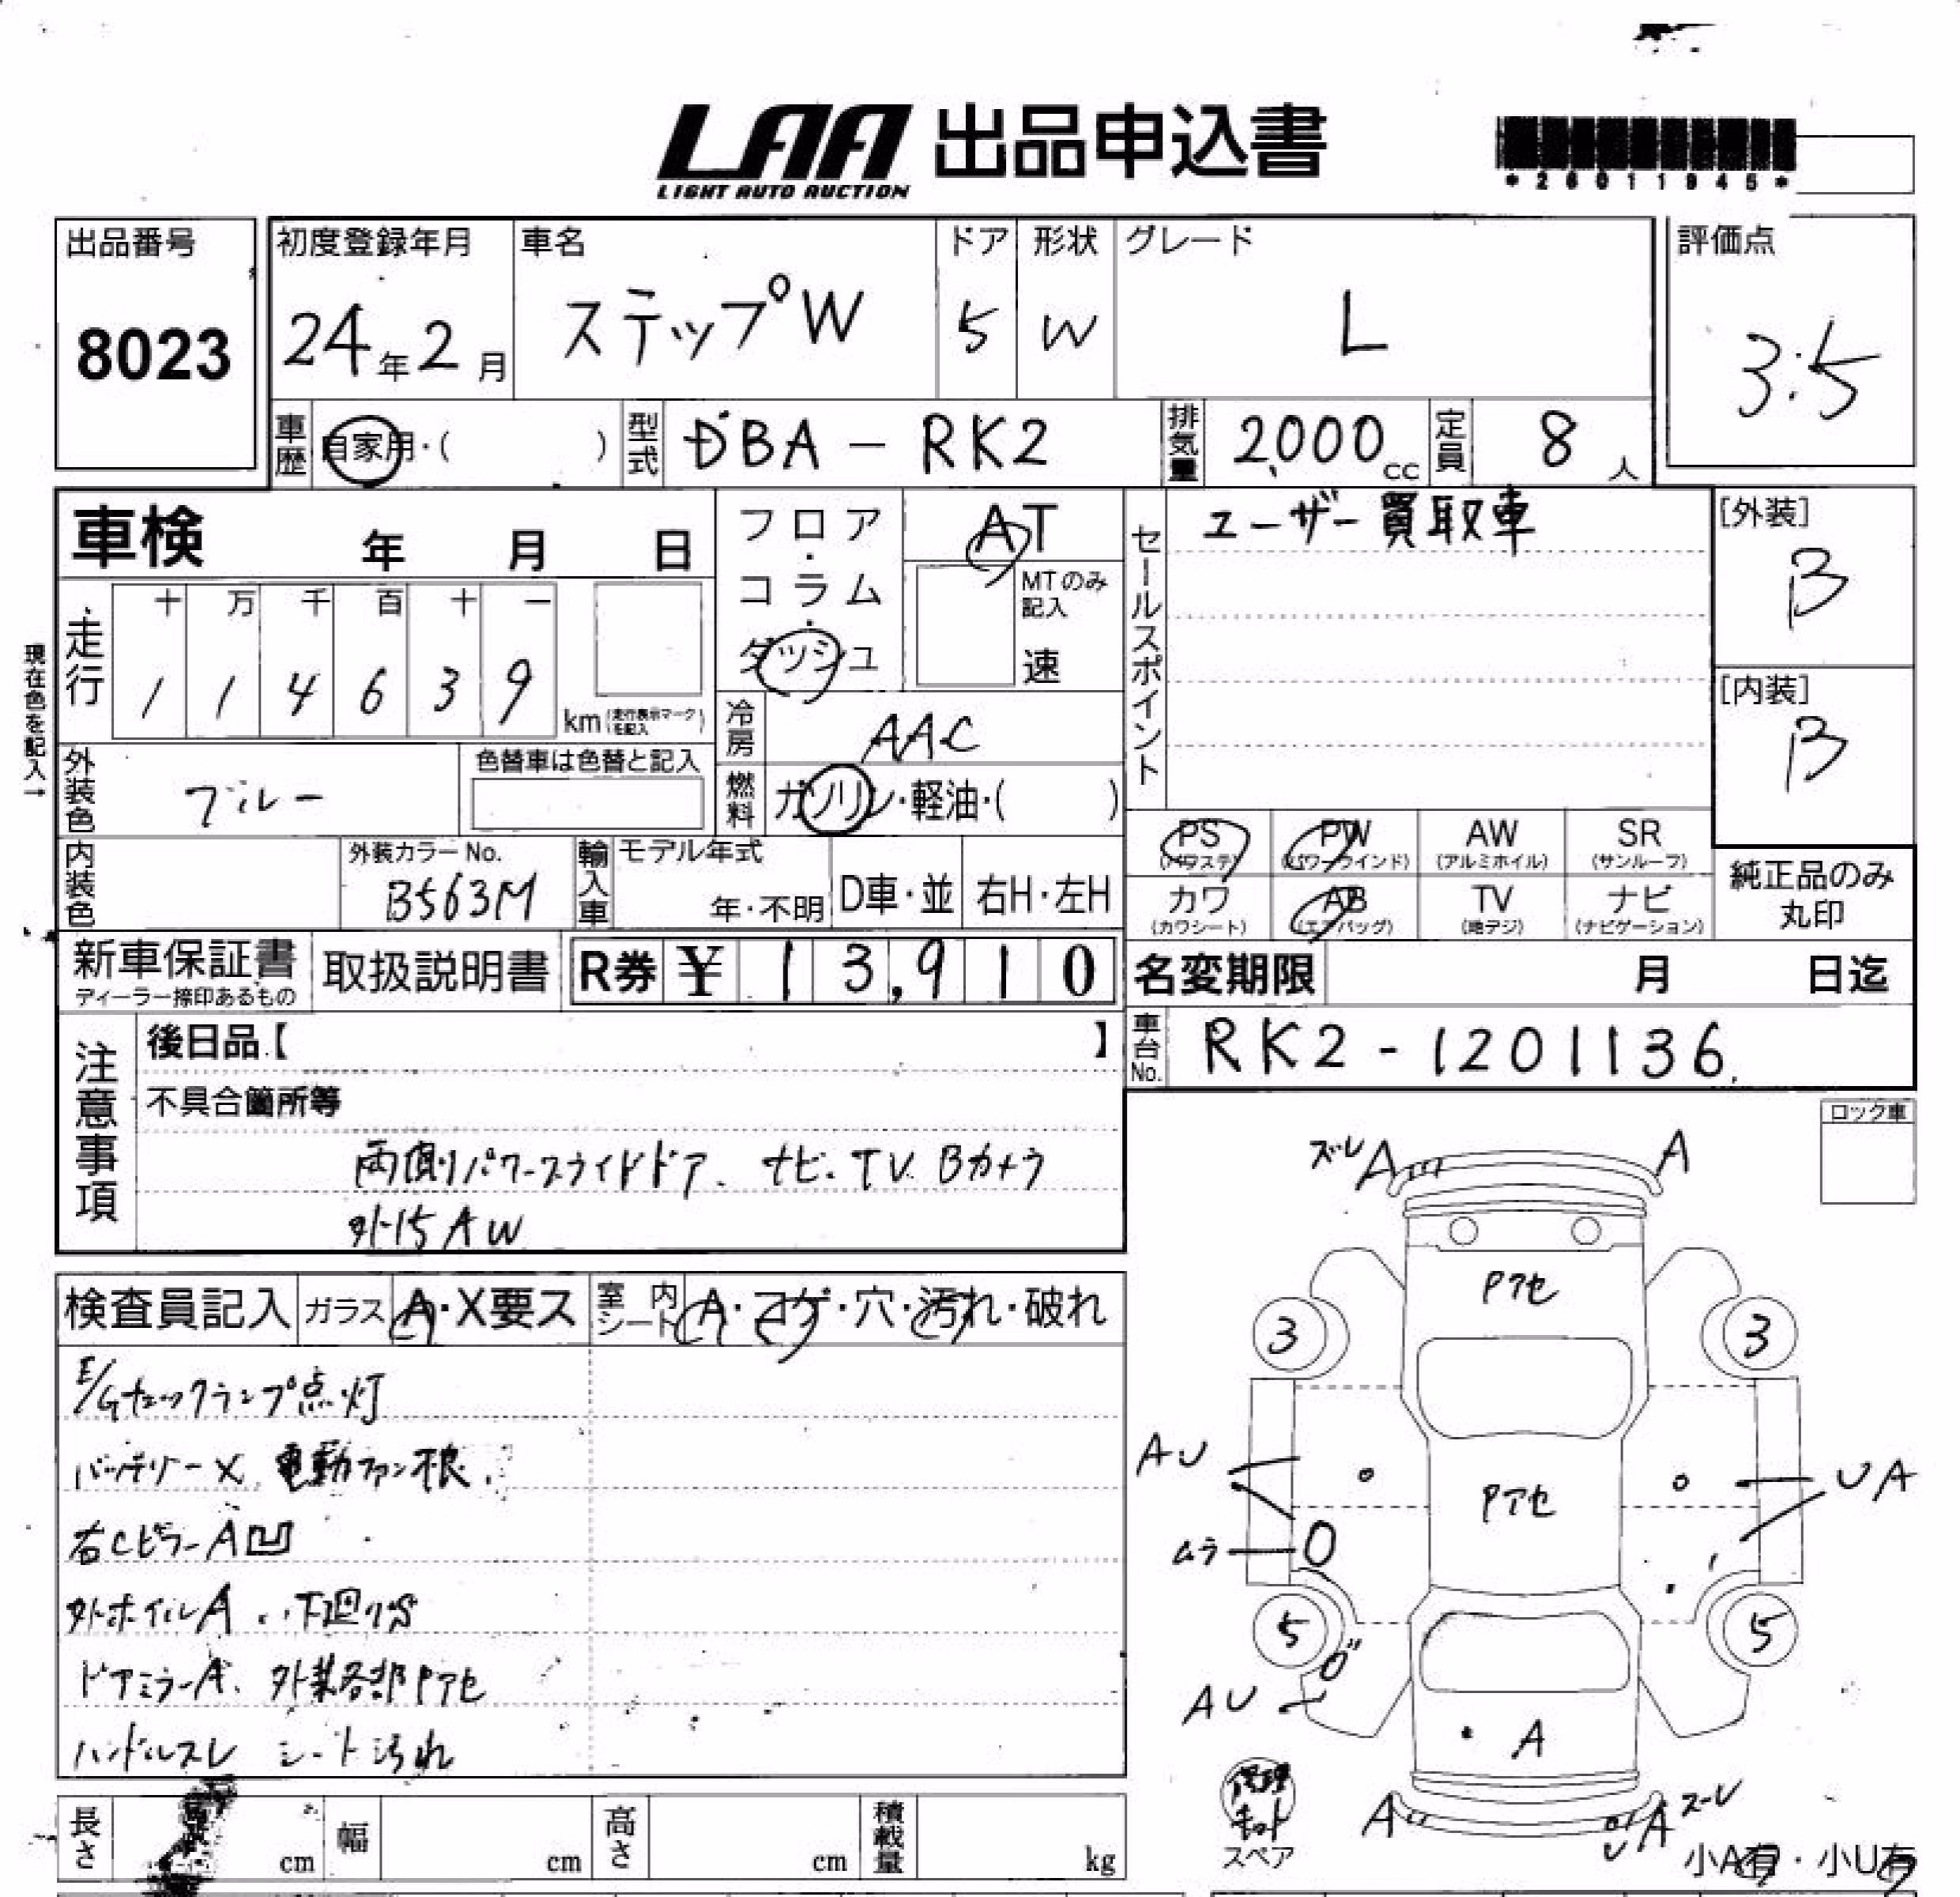 LAA 出品申込書
LIGHT AUTO AUCTION
*26011945*
出品番号
8023
初度登録年月
24年2月
車名
ステップW
ドア
5
形状
W
グレード
L
評価点
3.5
車歴
自家用・( )
型式
DBA-RK2
排気量
2,000cc
定員
8人
車検 年 月 日
フロア・コラム・ダッシュ
AT
MTのみ記入
速
セールスポイント
ユーザー買取車
[外装]
B
[内装]
B
現在色を記入→
走行
十 万 千 百 十 一
1 1 4 6 3 9
km(走行表示マークを記入)
冷房
AAC
燃料
ガソリン・軽油・( )
外装色
ブルー
色替車は色替と記入
内装色
外装カラーNo.
B563M
輸入車
モデル年式
年・不明
D車・並
右H・左H
PS(パワステ)
PW(パワーウインド)
AW(アルミホイル)
SR(サンルーフ)
カワ(カワシート)
AB(エアバッグ)
TV(地デジ)
ナビ(ナビゲーション)
純正品のみ丸印
新車保証書
ディーラー捺印あるもの
取扱説明書
R券 ¥13,910
名変期限 月 日迄
車台No.
RK2-1201136
注意事項
後日品【 】
不具合箇所等
両側パワースライドドア、ナビ、TV Bカメラ
外15AW
ロック車
検査員記入
ガラス A・X要ス
室内シート A・コゲ・穴・汚れ・破れ
E/Gチェックランプ点灯
バッテリーX、電動ファン不良
右CピラーA凹
外ホイルA、下廻りS
ドアミラーA、外装各部Pアセ
ハンドルスレ シート汚れ
ズレ A A
Pアセ
3 3
AU
Pアセ
UA
ムラ
5 5
AU
A
修理キット
スペア
A
A ズレ
U
小A有・小U有
長さ cm
幅 cm
高さ cm
積載量 kg